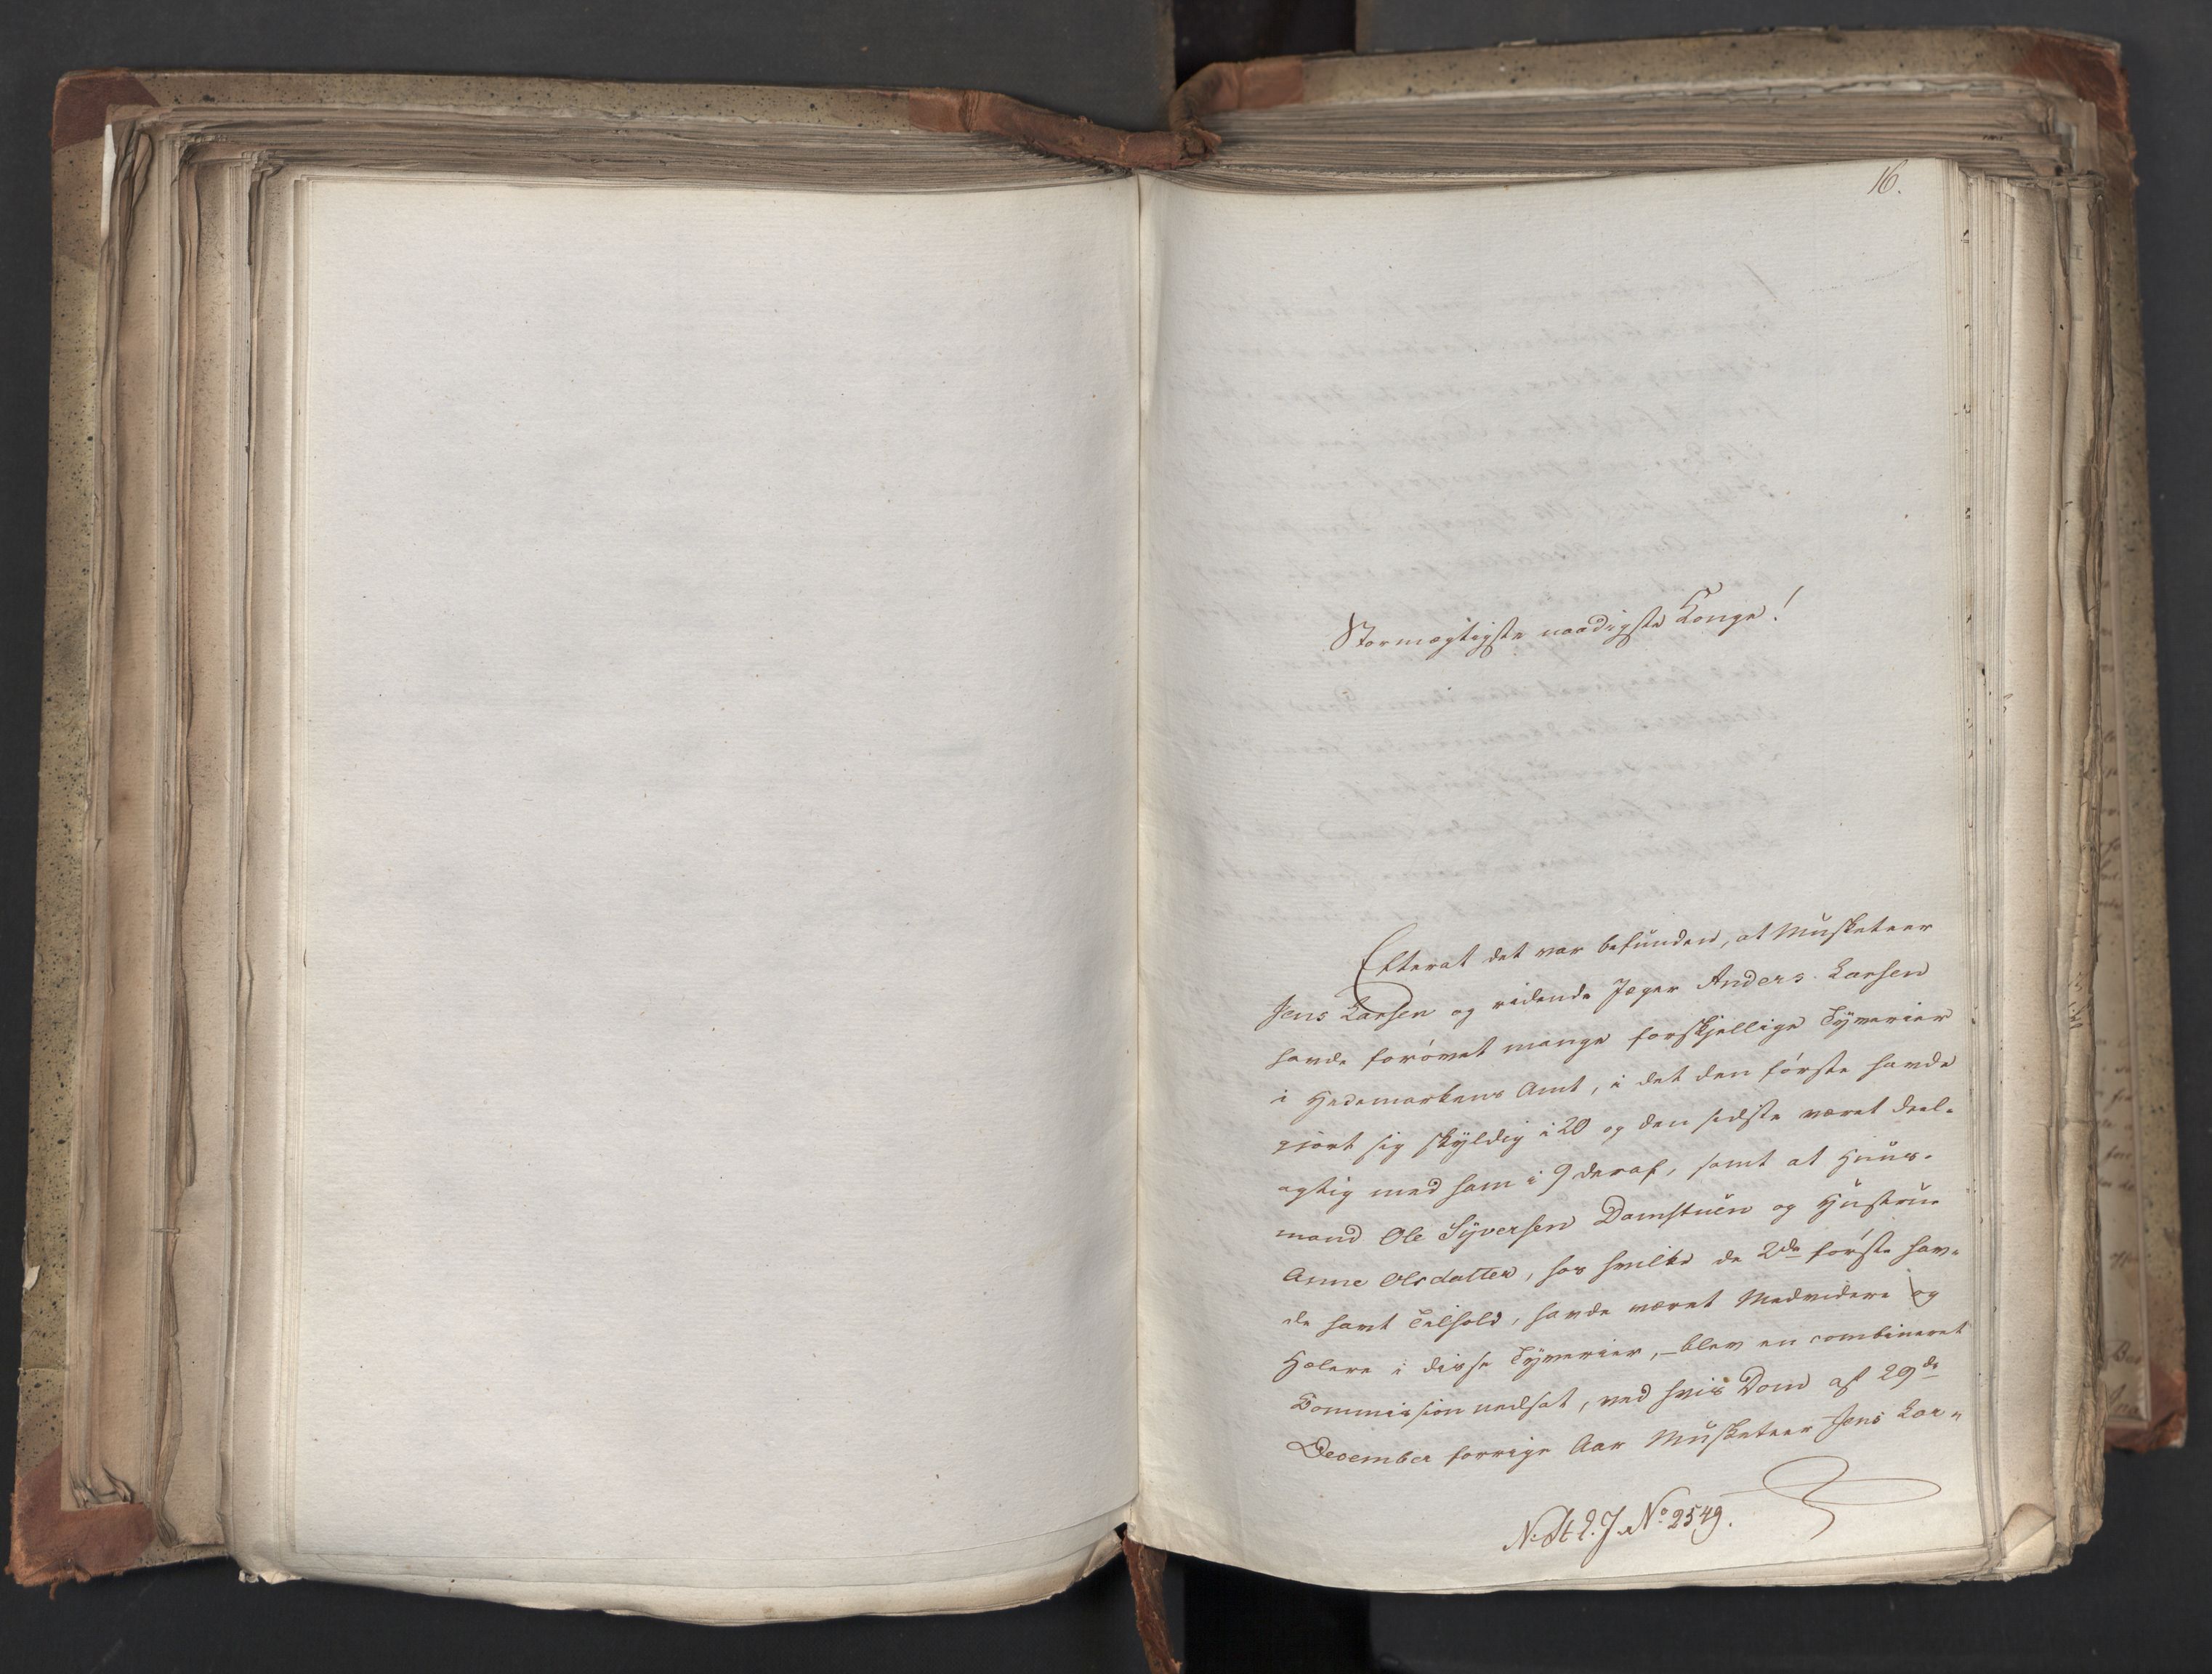 16.
Stormægtigste naadigste Konge!
Efterat det var befunden, at Musketeer
Jens Larsen og ridende Jæger Anders Larsen
havde forøvet mange forskjellige Tyverier
i Hedemarkens Amt, i det den første havde
gjort sig skyldig i 20 og den sidste været deel-
agtig med ham i 9 deraf, samt at Huus-
mand Ole Syversen Damstuen og Hustrue
Anne Olsdatter, hos hvilke de 2de første hav-
de havt Tilhold, havde været Medvidere og
Hælere i disse Tyverier, – blev en combineret
Commission nedsat, ved hvis Dom af 29de
December forrige Aar Musketeer Jens Lar-
No 2549.